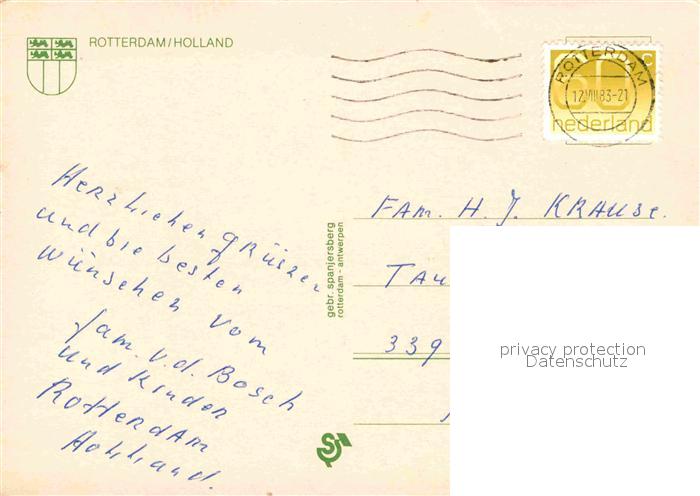 ROTTERDAM/HOLLAND
ROTTERDAM
12.VIII.83-21
60 C
nederland
Herzlichen grüszen
und die besten
wünschen vom
fam. v.d. Bosch
und Kinder
Rotterdam
Holland.
gebr. spanjersberg
rotterdam - antwerpen
FAM. H. J. KRAUSE.
TAU
339
privacy protection
Datenschutz